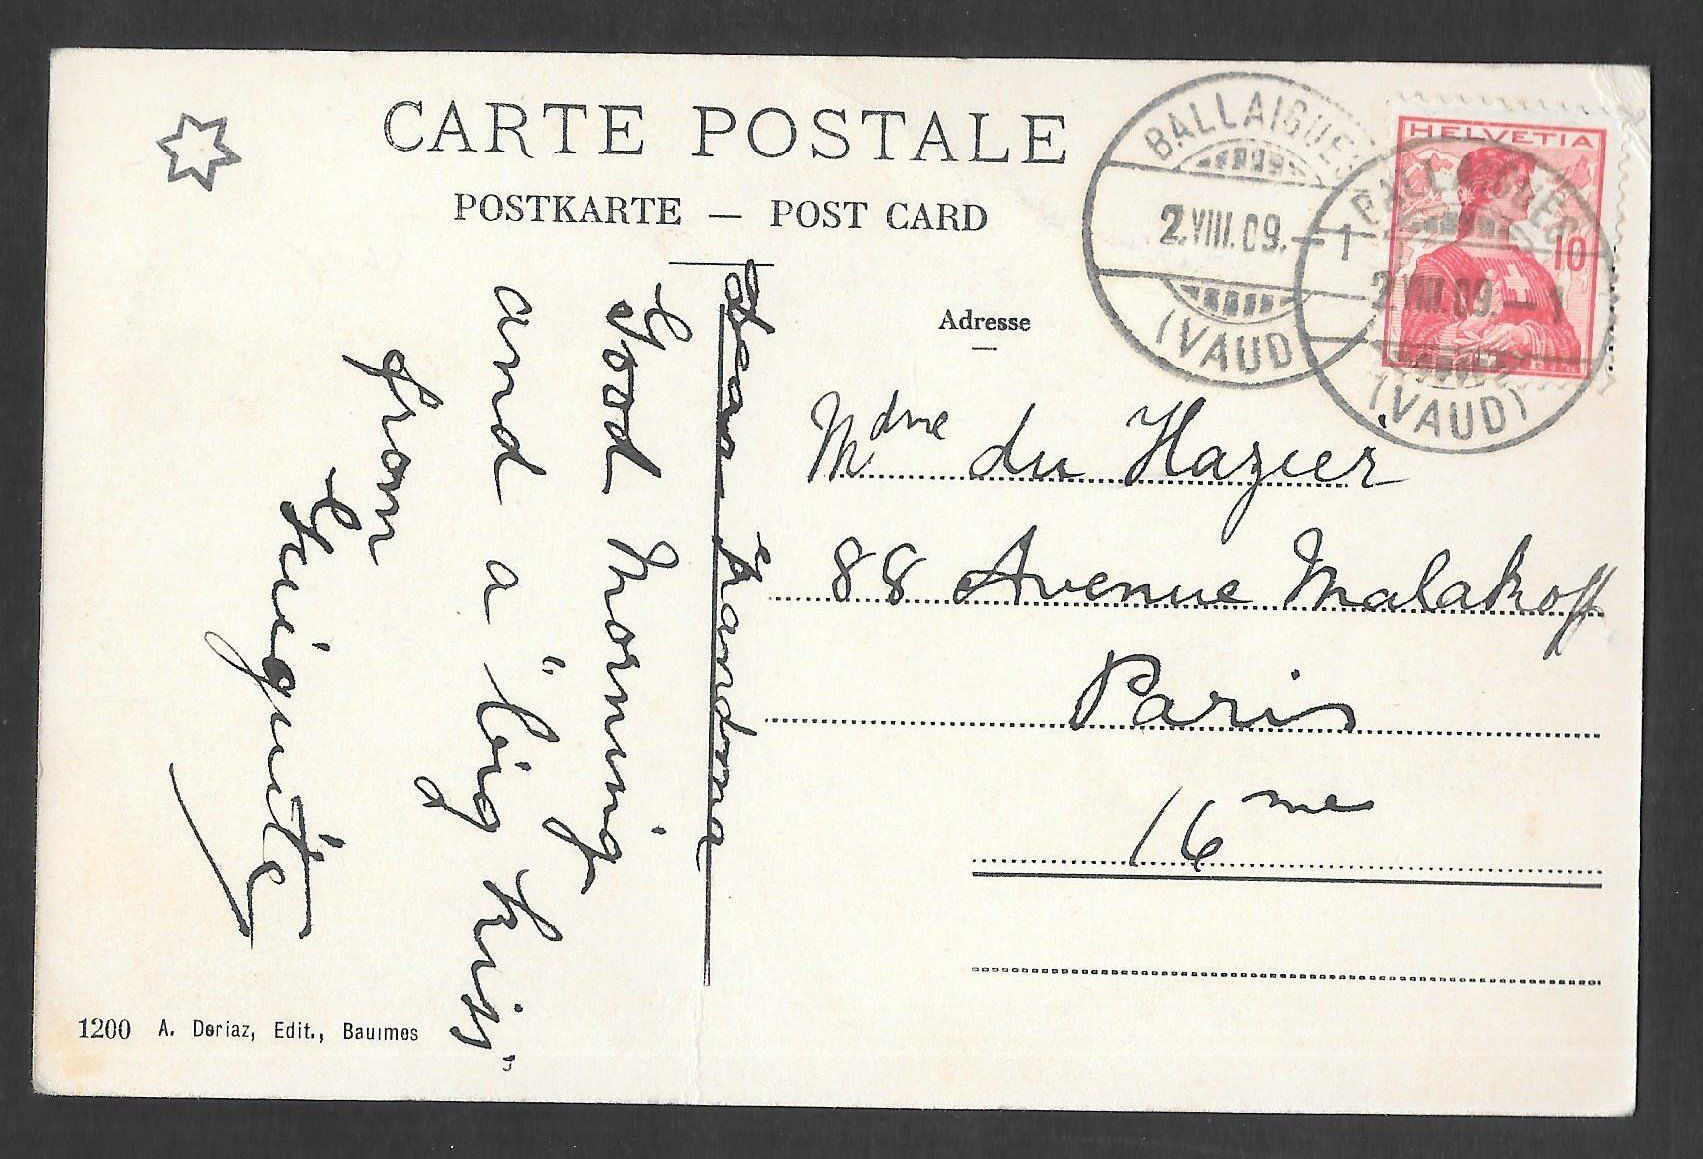 CARTE POSTALE
POSTKARTE — POST CARD
Adresse
BALLAIGUES
2.VIII.09.–1
(VAUD)
BALLAIGUES
2.VIII.09.–1
(VAUD)
HELVETIA
10
Mdme du Hazier
88 Avenue Malakoff
Paris
16me
Dear Grandma
Good Morning
and a "big kiss"
from
1200 A. Deriaz, Edit., Baulmes